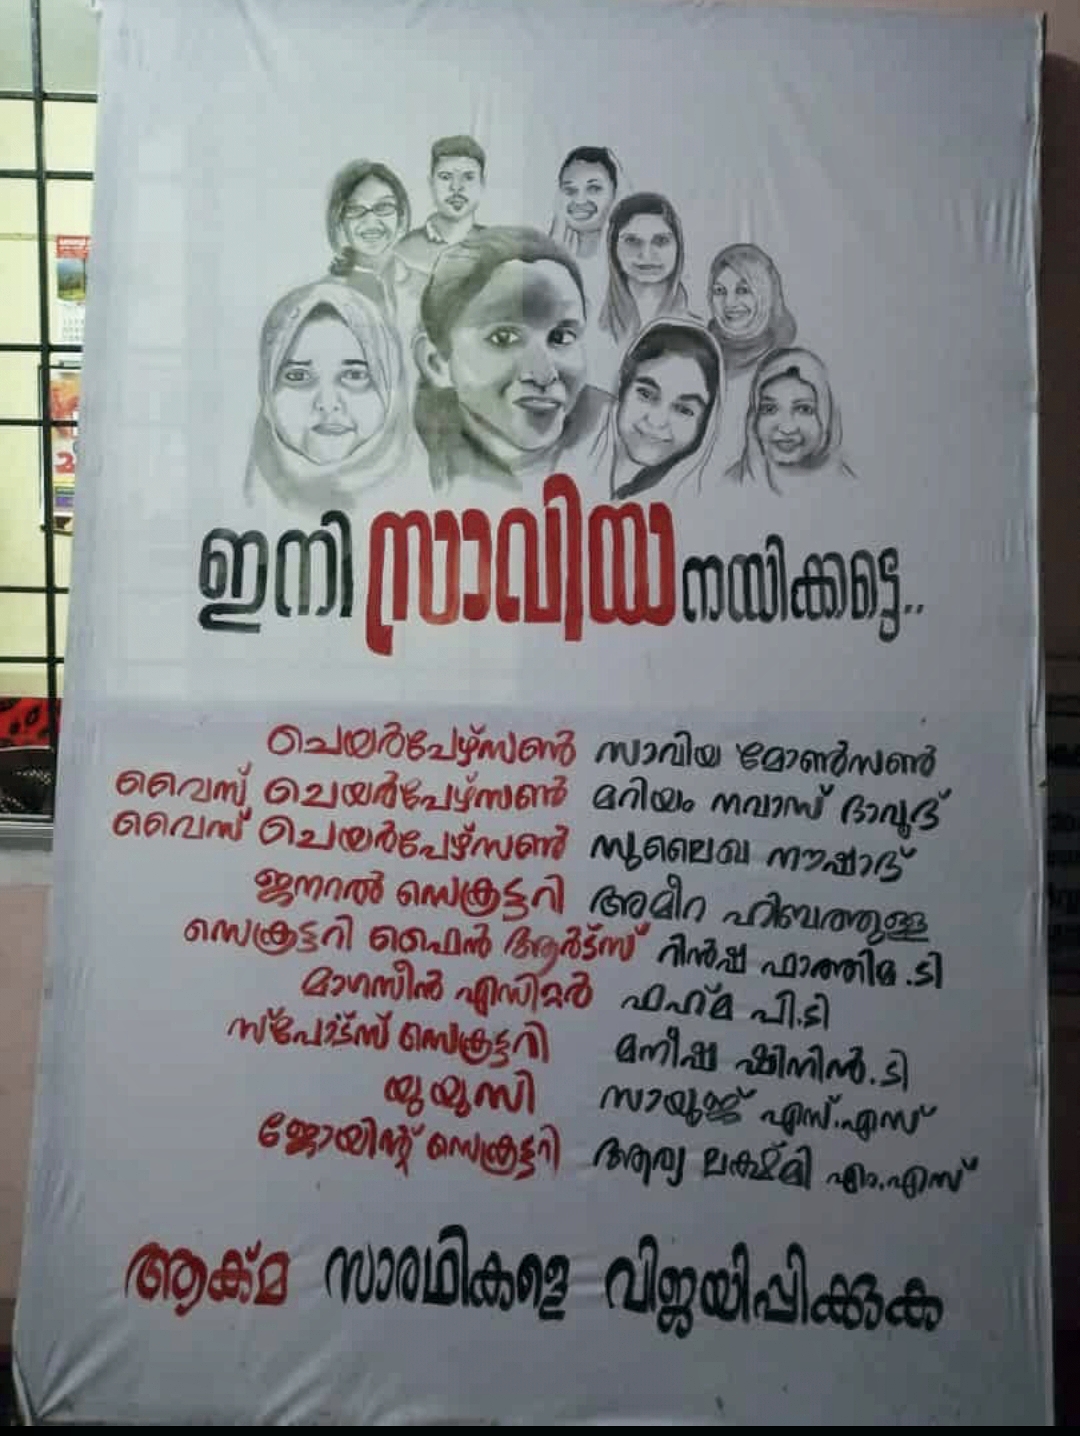 ഇനി സാവിയ നയിക്കട്ടെ..
ചെയർപേഴ്സൺ സാവിയ മോൺസൺ
വൈസ് ചെയർപേഴ്സൺ മറിയം നവാസ് ദാവൂദ്
വൈസ് ചെയർപേഴ്സൺ സുലൈഖ നൗഷാദ്
ജനറൽ സെക്രട്ടറി അമീറ ഹിബത്തുള്ള
സെക്രട്ടറി ഫൈൻ ആർട്സ് റിൻഷ ഫാത്തിമ .ടി
മാഗസീൻ എഡിറ്റർ ഫഹ്മ പി.ടി
സ്പോട്സ് സെക്രട്ടറി മനീഷ ഷിനിൻ.ടി
യു യു സി സായൂജ് എസ്.എസ്
ജോയിന്റ് സെക്രട്ടറി ആര്യ ലക്ഷ്മി എം.എസ്
ആക്മ സാരഥികളെ വിജയിപ്പിക്കുക